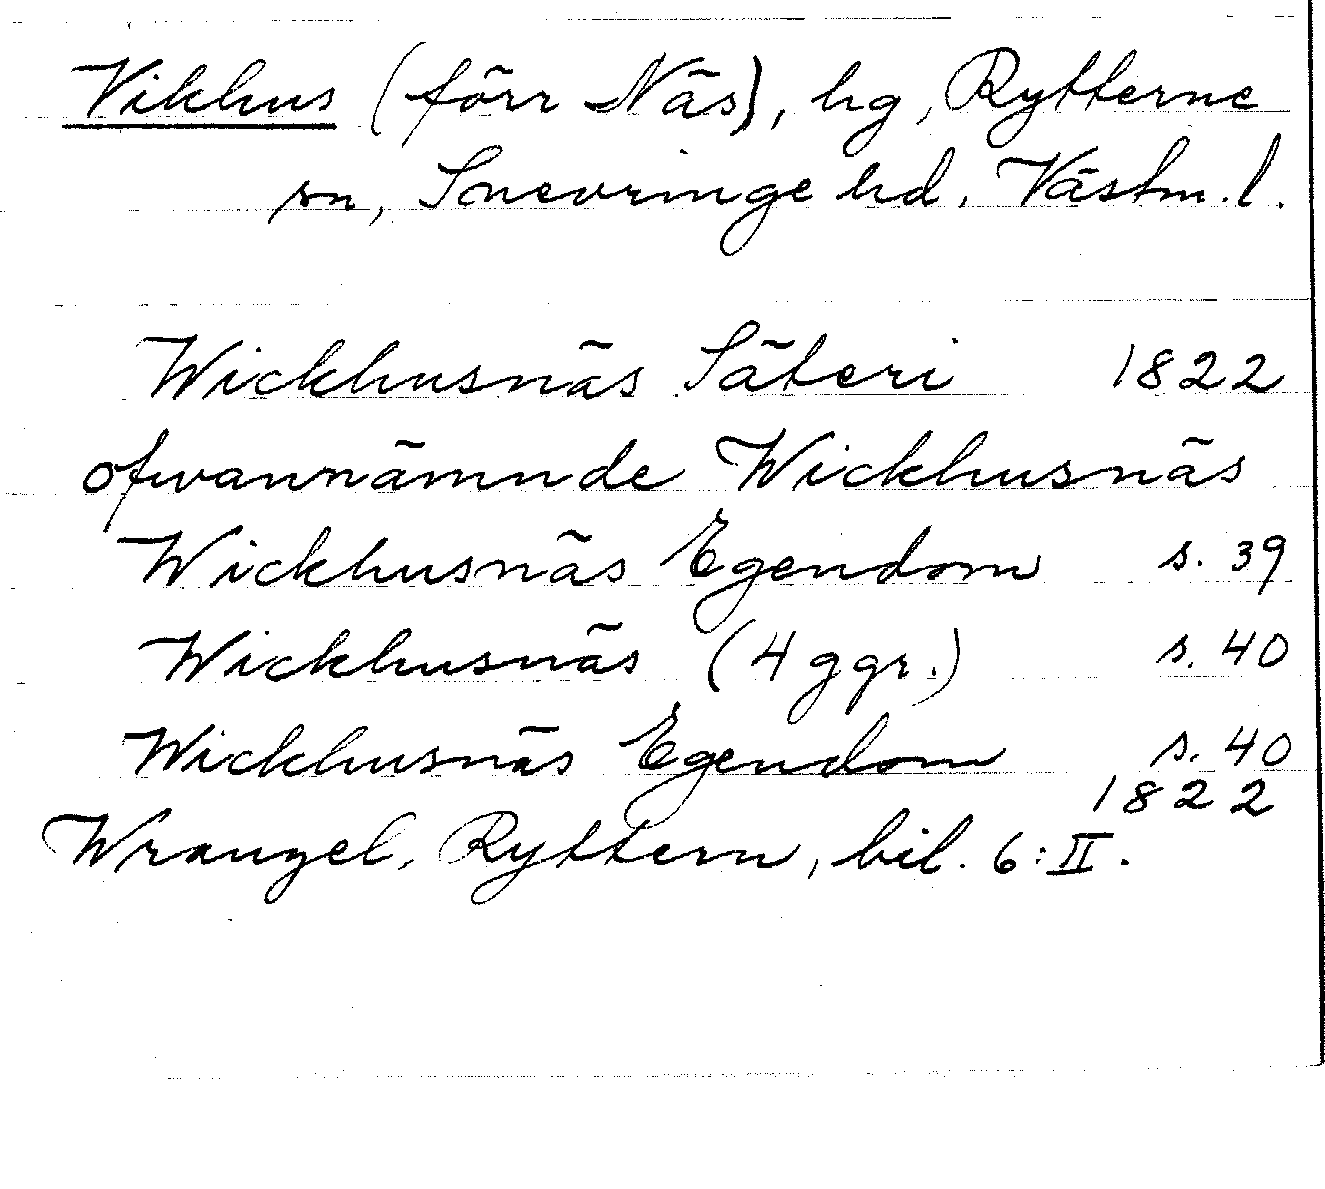 Vikhus (förr Näs), hg, Rytterne
sn, Snevringe hd, Västm. l.
Wickhusnäs Säteri 1822
ofwannämnde Wickhusnäs
Wickhusnäs Egendom s. 39
Wickhusnäs (4 ggr.) s. 40
Wickhusnäs Egendom s. 40
1822
Wrangel, Ryttern, bil. 6:II.